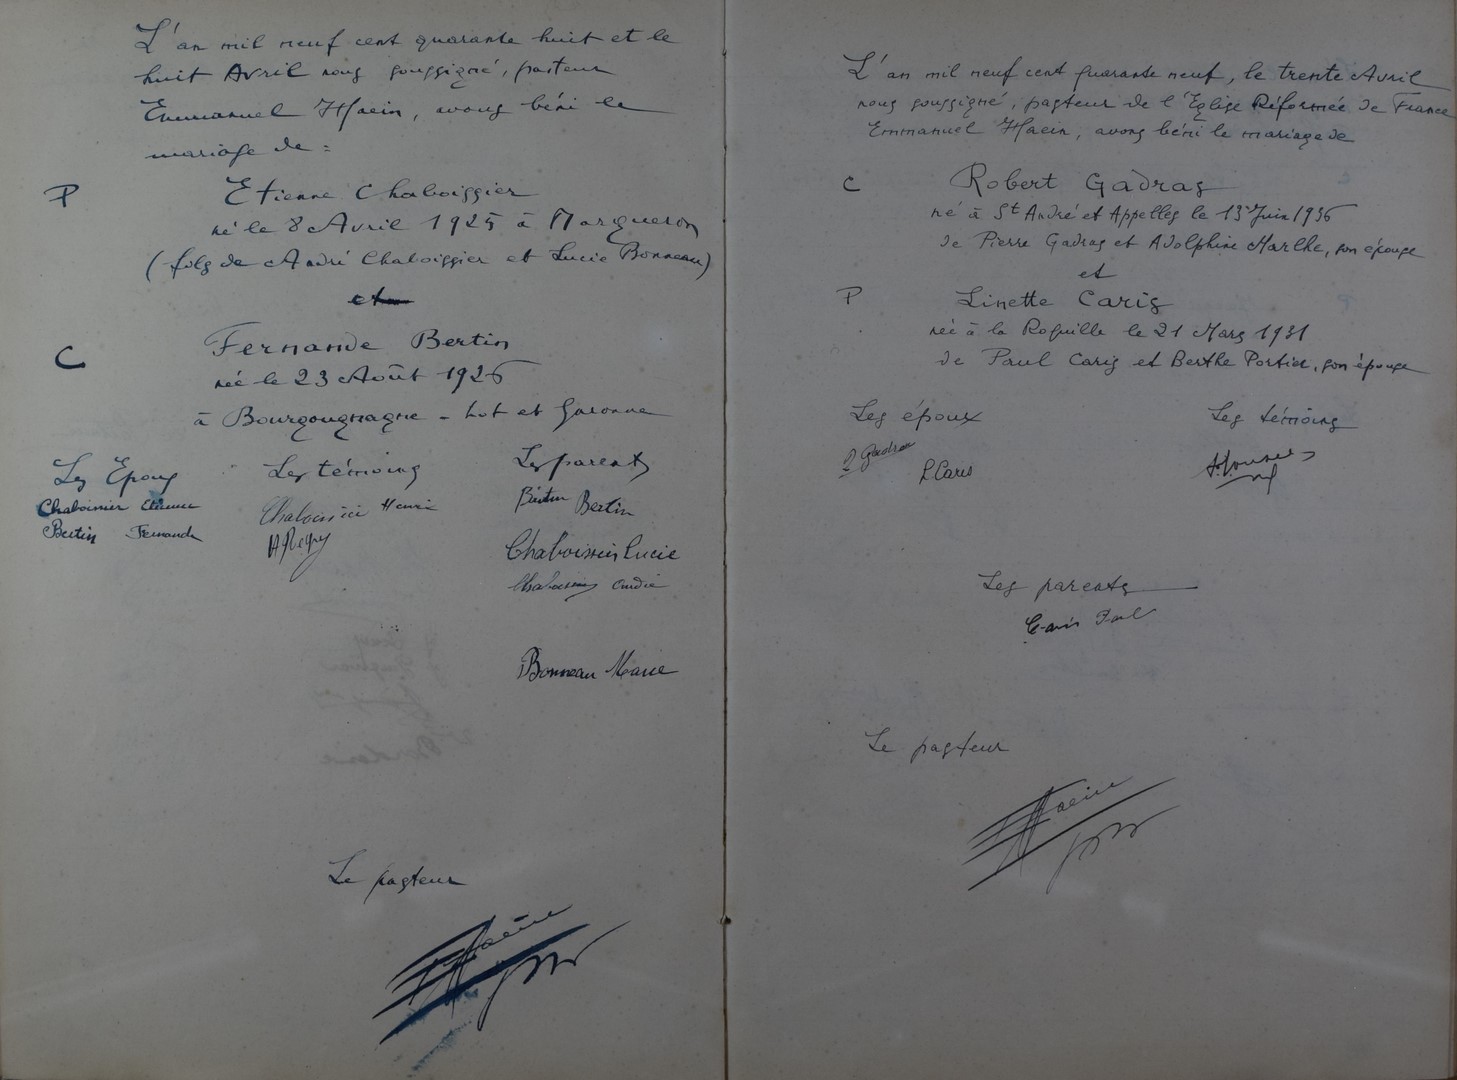 L'an mil neuf cent quarante huit et le
huit Avril nous soussigné, pasteur
Emmanuel Haein, avons béni le
mariage de :
P
Etienne Chaboissier
né le 8 Avril 1925 à Margueron
(fils de André Chaboissier et Lucie Bonneau)
et
C
Fernande Bertin
née le 23 Août 1926
à Bourgougnagne - Lot et Garonne
Les Epoux
Les témoins
Les parents
Chaboissier Etienne
Chaboissier Henri
Bertin Bertin
Bertin Fernande
Chaboissier Lucie
Chaboissier André
Bonneau Marie
Le pasteur
Haein
L'an mil neuf cent quarante neuf, le trente Avril
nous soussigné, pasteur de l'Eglise Réformée de France
Emmanuel Haein, avons béni le mariage de
C
Robert Gadras
né à St André et Appelles le 13 Juin 1936
de Pierre Gadras et Adolphine Marthe, son épouse
et
P
Linette Caris
née à la Roquille le 21 Mars 1931
de Paul Caris et Berthe Portier, son épouse
Les époux
Les témoins
Gadras
L. Caris
Les parents
Caris Paul
Le pasteur
Haein